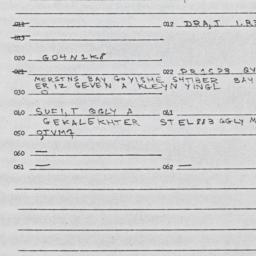 011 012 DRA,T I.R
013
020 GO4N1K8
021 022
MERSTNS BAY GOYISHE SHTIBER BAY
030 ER IZ GEVEN A KLEYN YINGL
040 SUFI,T OGLY A 041
GEKALEKHTER STEL883 OGLY M
050 OIVM7
060 —
061 — 062 —